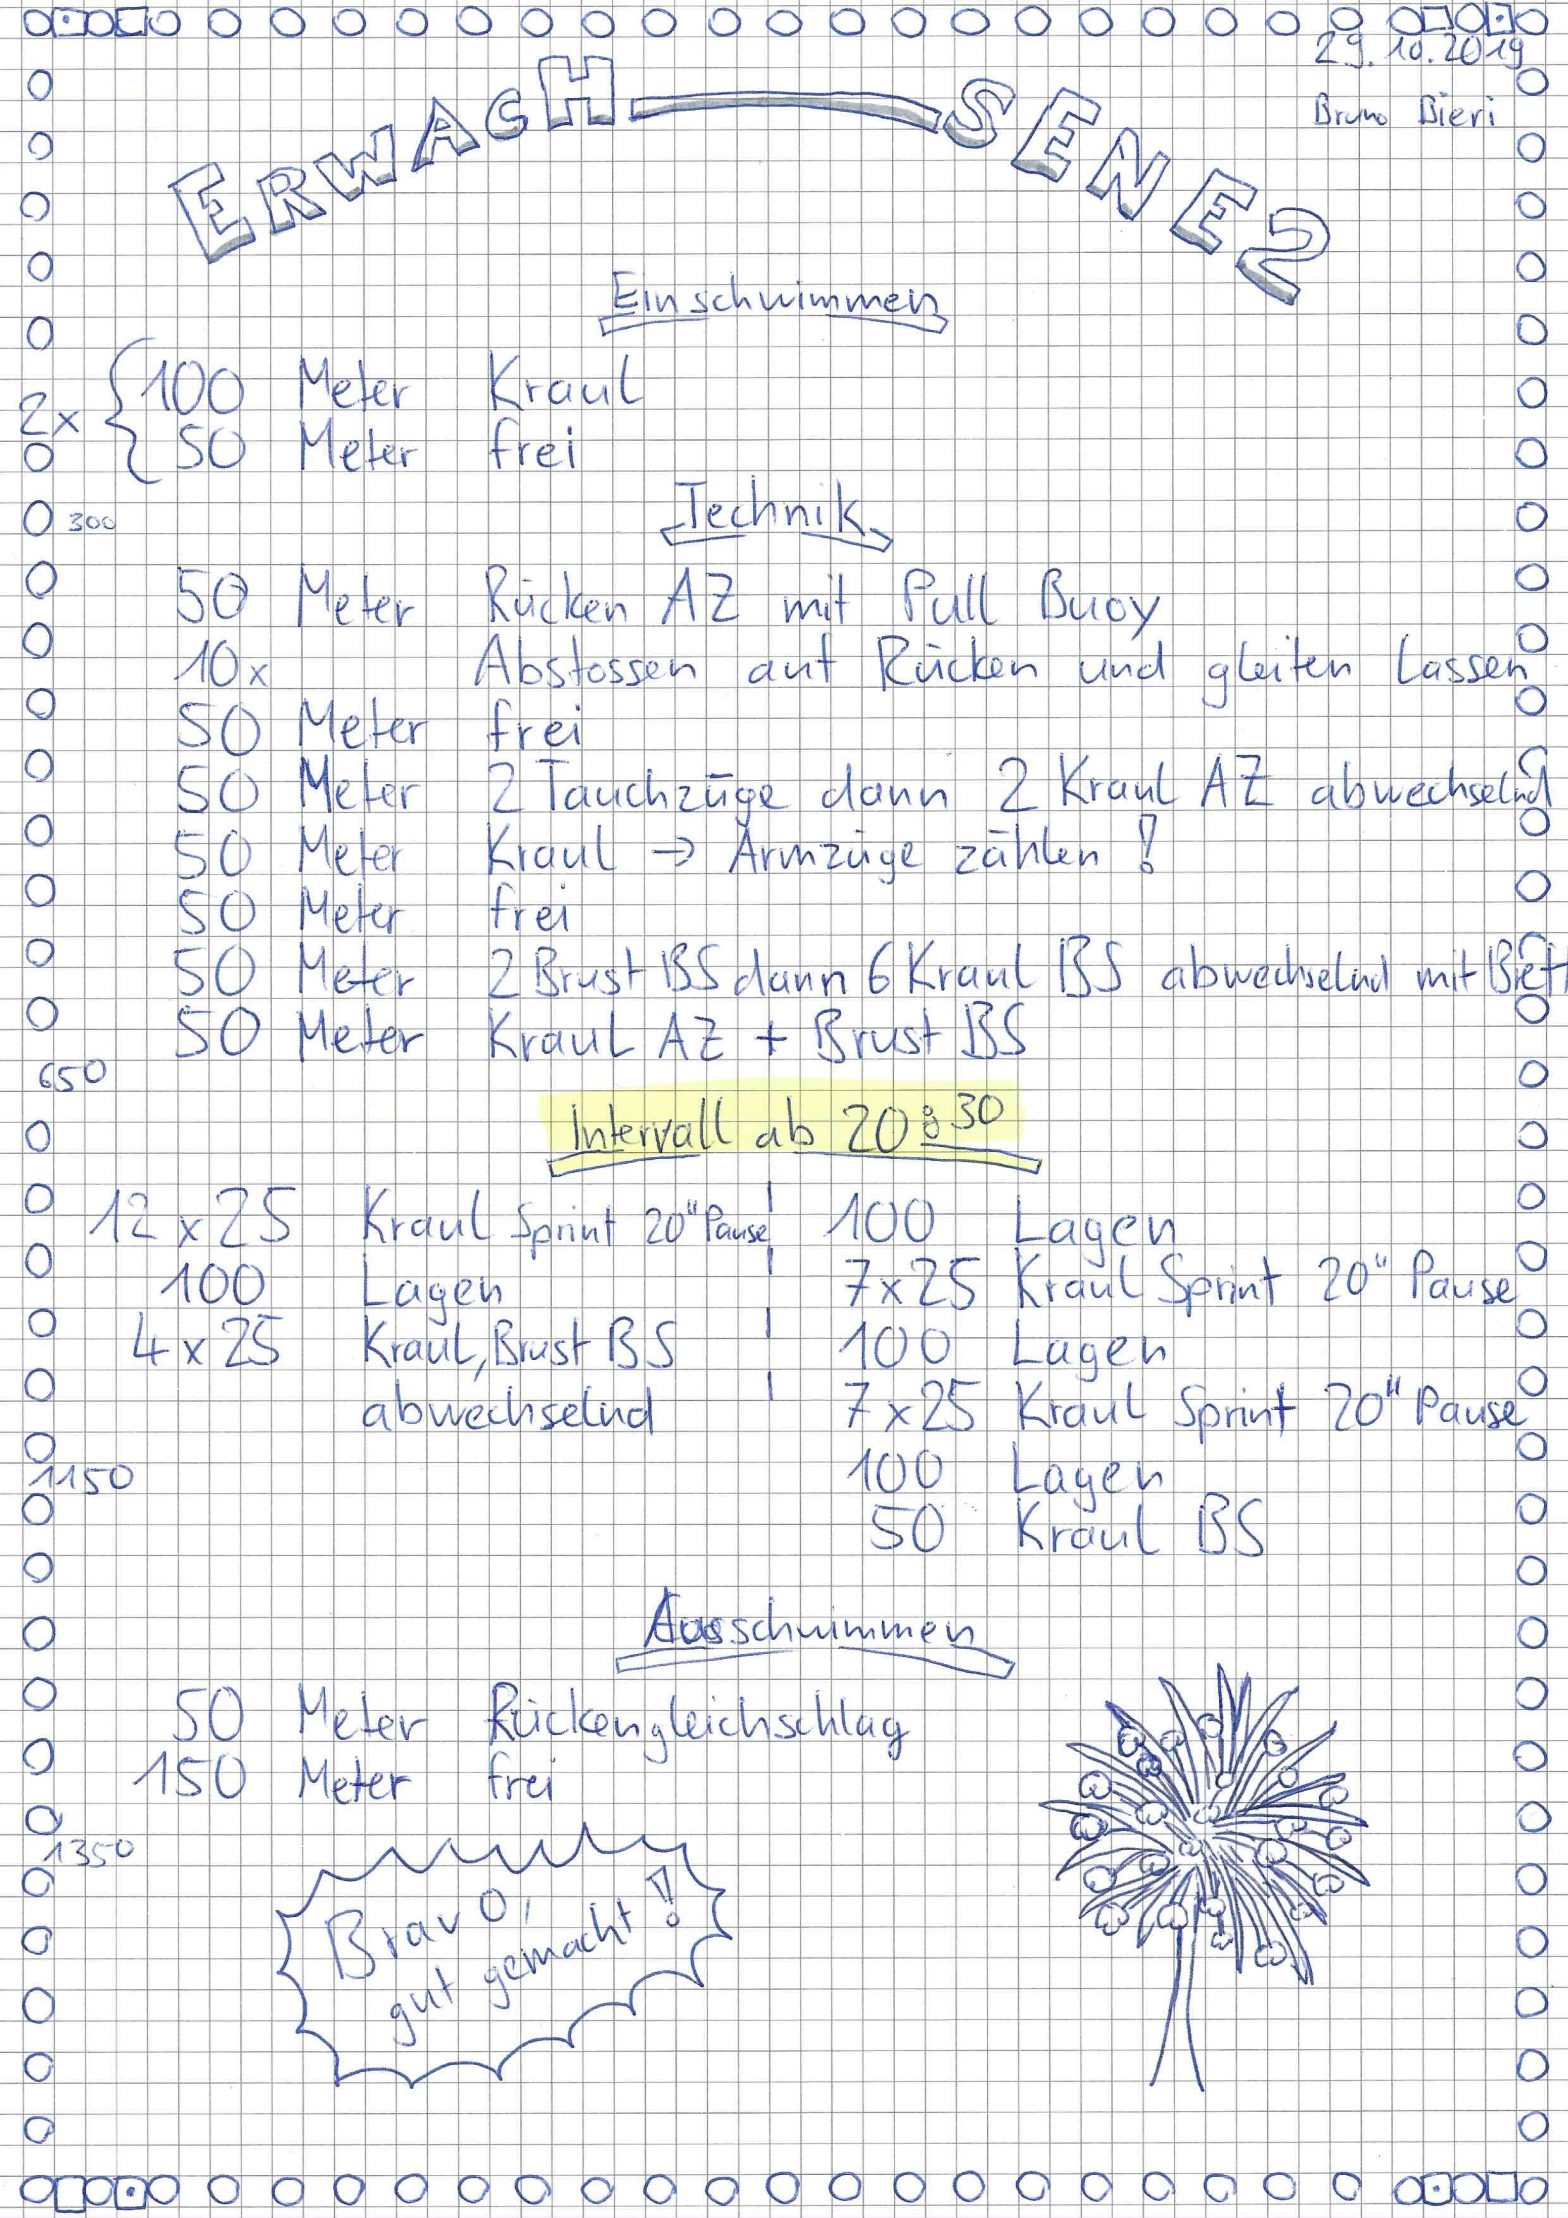 29.10.2019
Bruno Bieri
ERWACHSENE 2
Einschwimmen
2x { 100 Meter Kraul
50 Meter frei
300
Technik
50 Meter Rücken AZ mit Pull Buoy
10x Abstossen auf Rücken und gleiten lassen
50 Meter frei
50 Meter 2 Tauchzüge dann 2 Kraul AZ abwechselnd
50 Meter Kraul → Armzüge zählen!
50 Meter frei
50 Meter 2 Brust BS dann 6 Kraul BS abwechselnd mit Brett
50 Meter Kraul AZ + Brust BS
650
Intervall ab 20:30
12 x 25 Kraul Sprint 20" Pause
100 Lagen
4 x 25 Kraul, Brust BS
abwechselnd
1150
100 Lagen
7 x 25 Kraul Sprint 20" Pause
100 Lagen
7 x 25 Kraul Sprint 20" Pause
100 Lagen
50 Kraul BS
Ausschwimmen
50 Meter Rückengleichschlag
150 Meter frei
1350
Bravo,
gut gemacht!